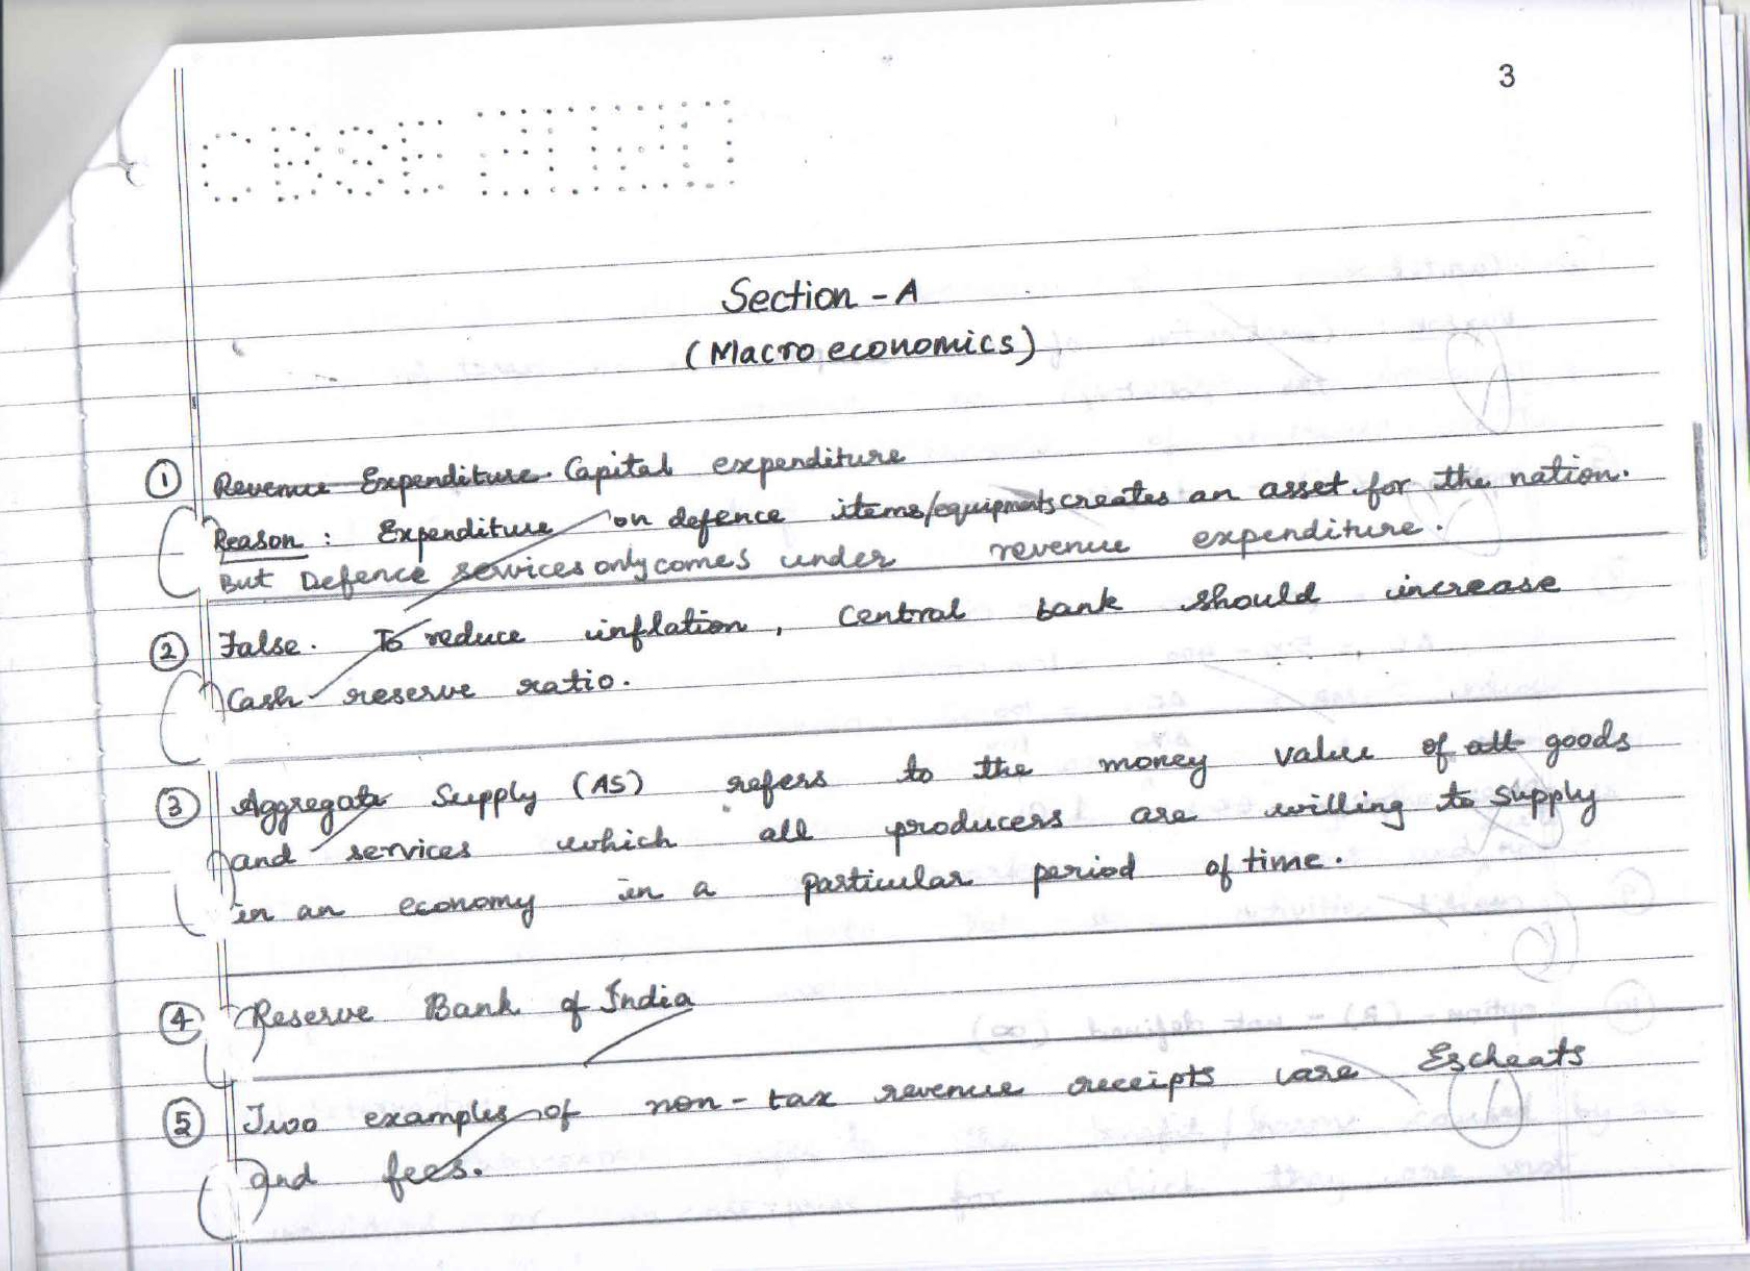 3
CBSE 2020
Section - A
(Macro economics)
① Revenue Expenditure. Capital expenditure
Reason : Expenditure on defence items/equipments creates an asset for the nation.
But Defence services only comes under revenue expenditure.
② False. To reduce inflation, Central bank should increase
Cash reserve ratio.
③ Aggregate Supply (AS) refers to the money value of all goods
and services which all producers are willing to supply
in an economy in a particular period of time.
④ Reserve Bank of India
⑤ Two examples of non-tax revenue receipts are Escheats
and fees.